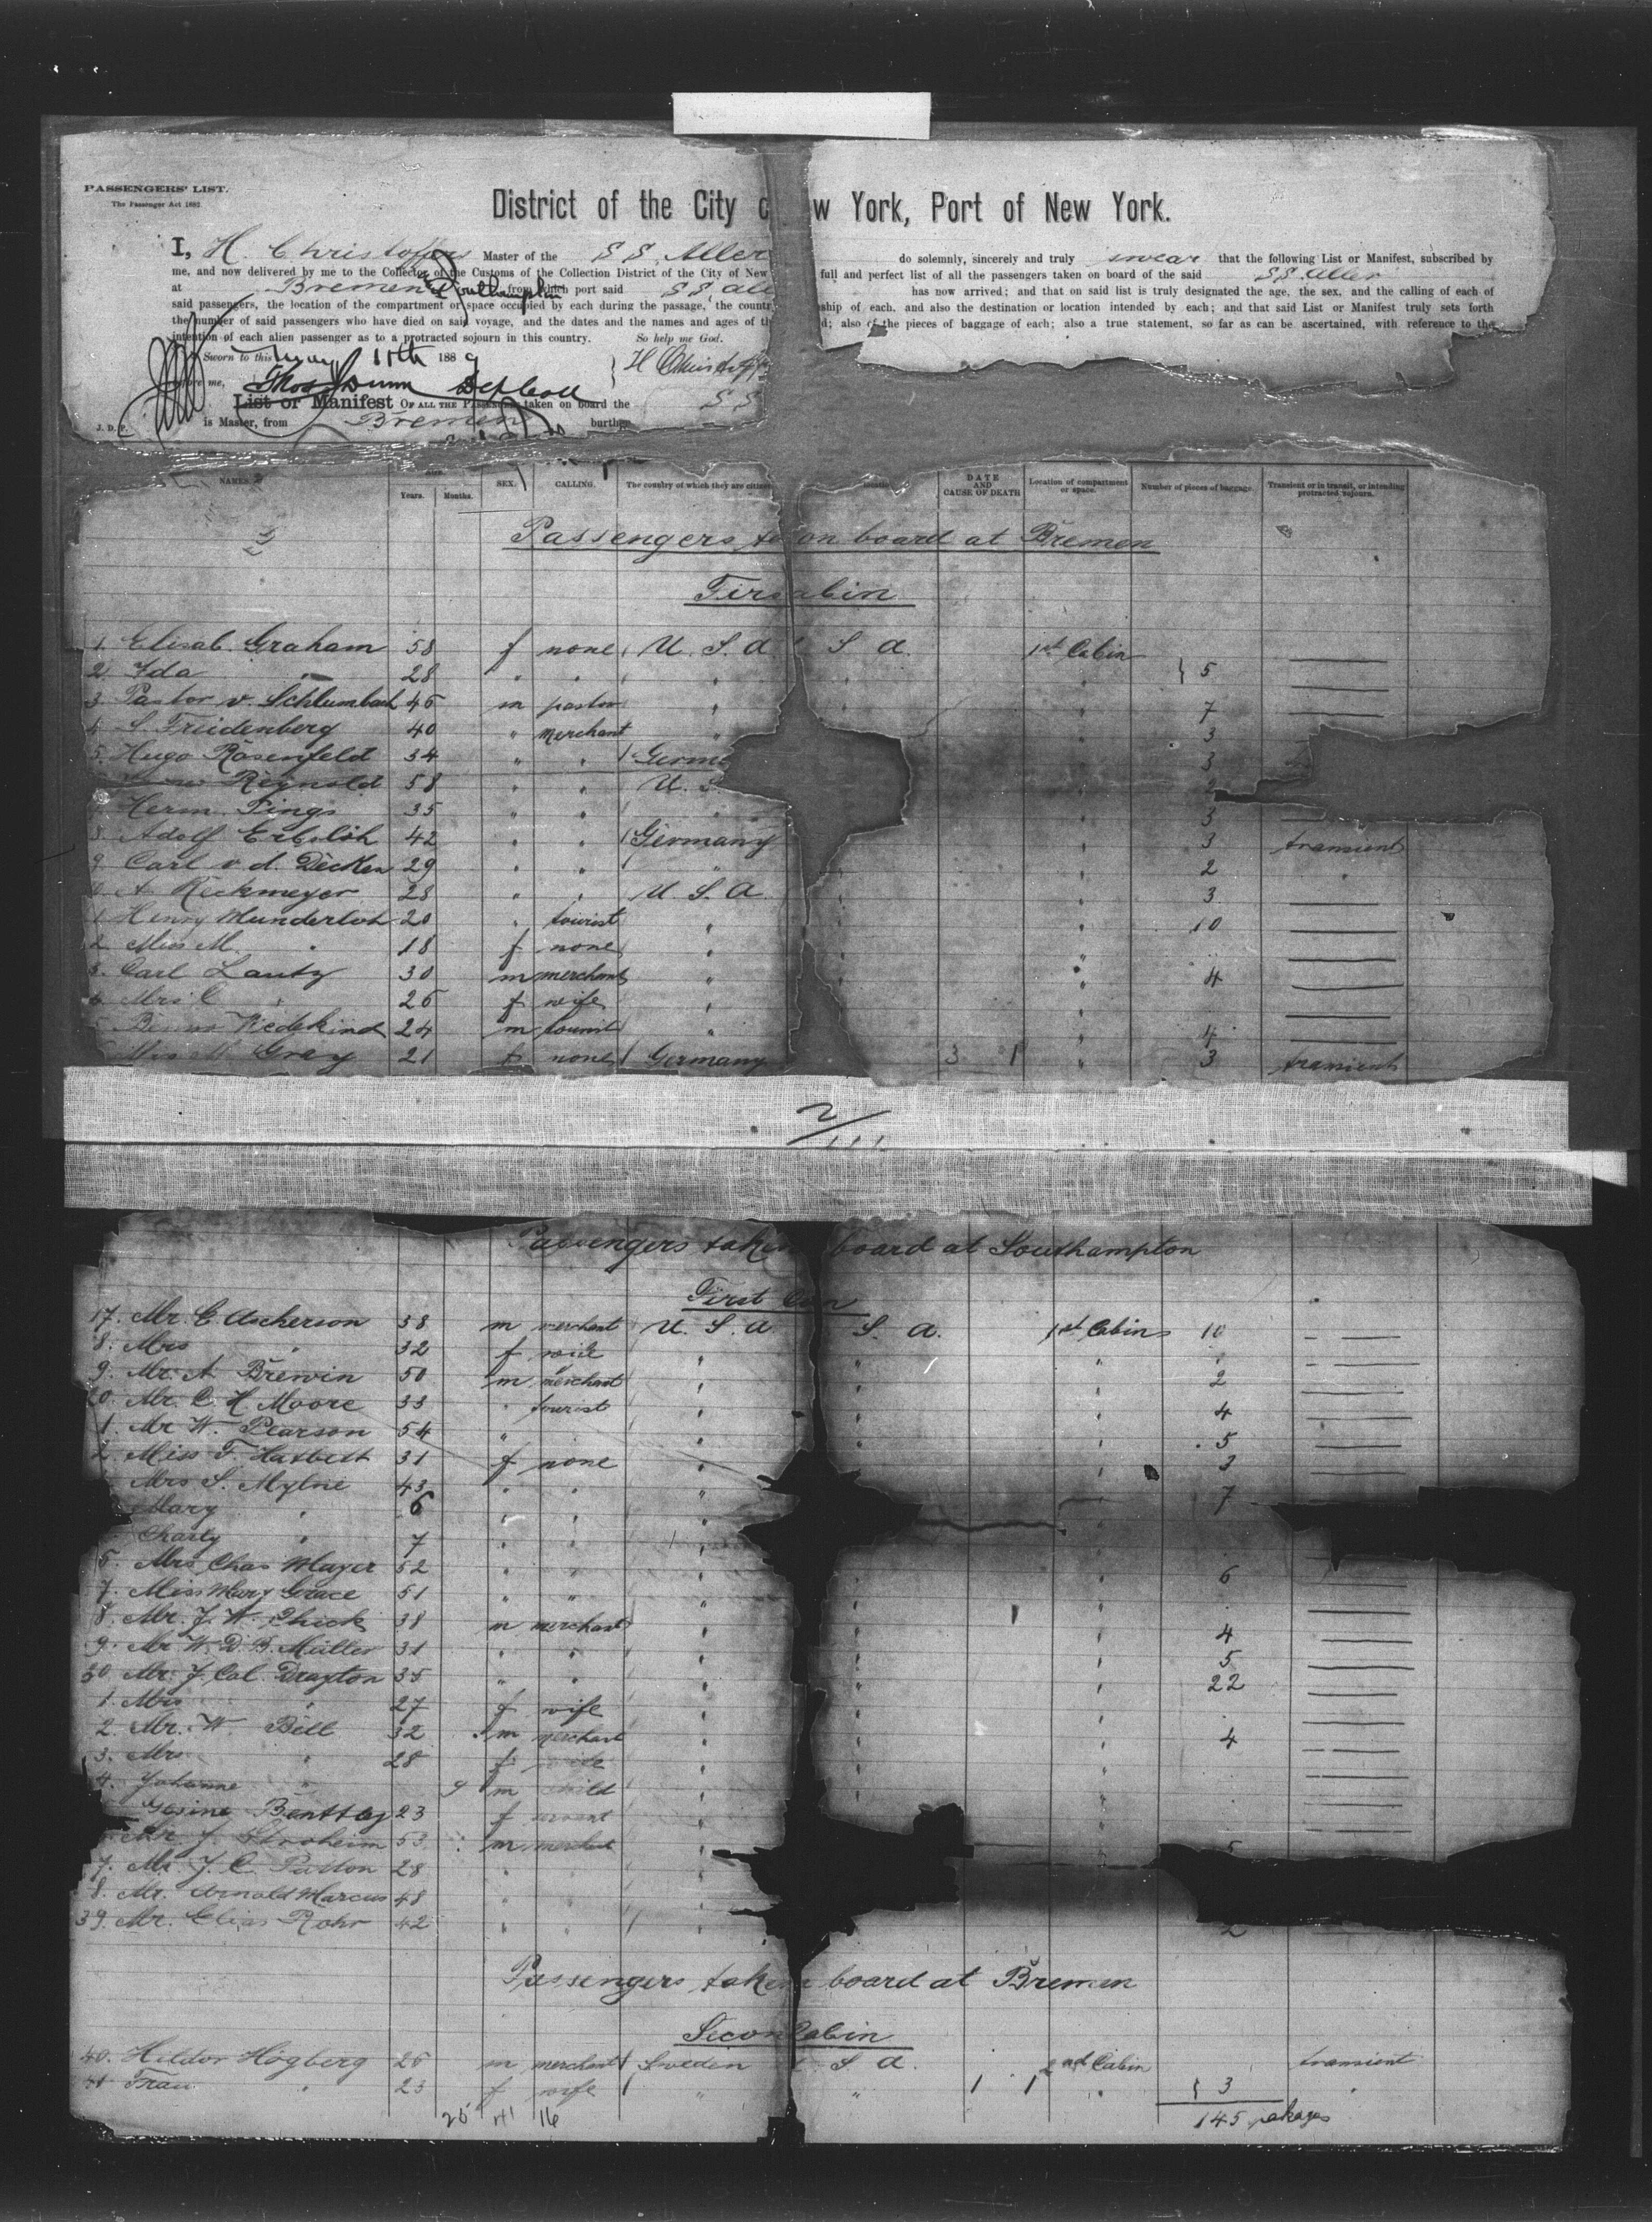 PASSENGERS' LIST.
The Passenger Act 1882
District of the City o w York, Port of New York.
I, H. Christoffers Master of the S S. Aller do solemnly, sincerely and truly swear that the following List or Manifest, subscribed by
me, and now delivered by me to the Collector of the Customs of the Collection District of the City of New full and perfect list of all the passengers taken on board of the said SS. Aller
at Bremen & Southampton from which port said S S. All has now arrived; and that on said list is truly designated the age, the sex, and the calling of each of
said passengers, the location of the compartment or space occupied by each during the passage, the countr ship of each, and also the destination or location intended by each; and that said List or Manifest truly sets forth
the number of said passengers who have died on said voyage, and the dates and the names and ages of th d; also of the pieces of baggage of each; also a true statement, so far as can be ascertained, with reference to the
intention of each alien passenger as to a protracted sojourn in this country. So help me God.
Sworn to this May 11th 1889 H Christoff
me, Thos Dunn
List or Manifest OF ALL THE PASSENGERS taken on board the S S
J. D. P. is Master, from Bremen burthe
NAMES. Years. Months. SEX. CALLING. The country of which they are citizens DATE AND CAUSE OF DEATH Location of compartment or space. Number of pieces of baggage. Transient or in transit, or intending protracted sojourn.
Passengers ta on board at Bremen
Firs abin
1. Elisab. Graham 58 f none U. S. A S A. 1st Cabin
2. Ida " 28 " " " } 5
3. Pastor v. Schlumbach 46 m pastor " 7
4 S. Freidenberg 40 " merchant " 3
5. Hugo Rosenfeld 34 " " Germa 3
Reynold 58 " " U. S. 2
Herm. Pings 35 " " 3
8. Adolf Erbslöh 42 " " Germany 3 transient
9. Carl v. d. Decken 29 " " " 2 "
0 A. Rickmeyer 28 " " U. S. A 3
1. Henry Munderloh 20 " tourist " 10
2. Miss M. " 18 f none "
3. Carl Lautz 30 m merchant " 4
4. Mrs C " 26 f wife "
5 Wedekind 24 m tourist " 4
Miss M. Gray 21 f none Germany 3 1 " 3 transient
2/111
Passengers taken board at Southampton
First C n
17. Mr. E. Ascherson 38 m merchant U. S. A S. A. 1st Cabin 10
8. Mrs " 32 f wife " " "
9. Mr. A Brewin 50 m merchant " " " 2
20. Mr. C. H. Moore 33 " tourist " " " 4
1. Mr W. Pearson 54 " " " " " 5
2. Miss F. 31 f none " " " 3
Mrs S. Mylne 43 " " " 7
Mary " 6 " " "
Charly " 7 " " "
6. Mrs Chas Mayer 52 " " " " 6
7. Miss Mary Grace 51 " " " " "
8. Mr. J. W. Chick 38 m merchant " " " 4
9. Mr W. D. B. Müller 31 " " " " " 5
30 Mr. J. Col. Drayton 35 " " " " " 22
1. Mrs " 27 f wife " " "
2. Mr. W. Bell 32 m merchant " " " 4
3. Mrs " 28 f wife " " "
4. Johanne " 9 m child " " "
Gesine 23 f servant " "
Mr. J. Stroheim 53 m merchant 5
7. Mr. J. C. Patton 28 " "
8. Mr. Arnold Marcus 48 " "
39. Mr. Elias Rohr 42 " " " 2
Passengers taken board at Bremen
Secon Cabin
40. Hildor Högberg 26 m merchant Sweden S A. 2nd Cabin transient
41 Frau " 23 f wife " " 1 1 " } 3 "
25 41 16 145 pckages